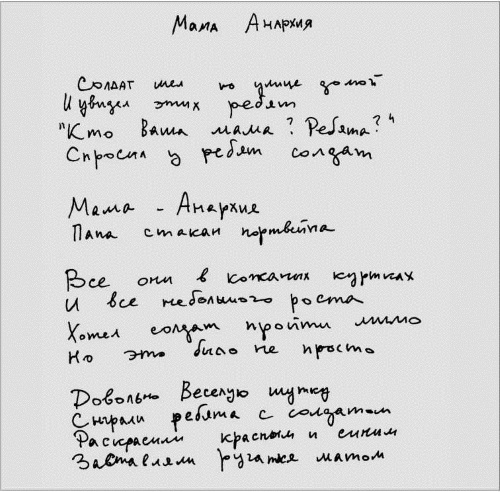 Мама Анархия
Солдат шел по улице домой
И увидел этих ребят
"Кто ваша мама? Ребята?"
Спросил у ребят солдат
Мама - Анархие
Папа стакан портвейна
Все они в кожаных куртках
И все небольшого роста
Хотел солдат пройти мимо
Но это было не просто
Довольно Веселую шутку
Сыграли ребята с солдатом
Раскрасили красным и синим
Заставляли ругатся матом